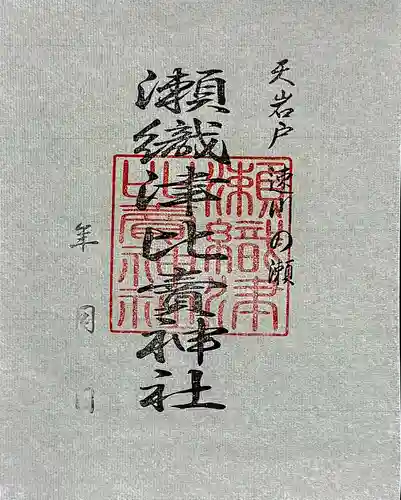 天岩戸 速川の瀬
瀬織津比賣神社
瀬織津
比賣神社
年 月 日